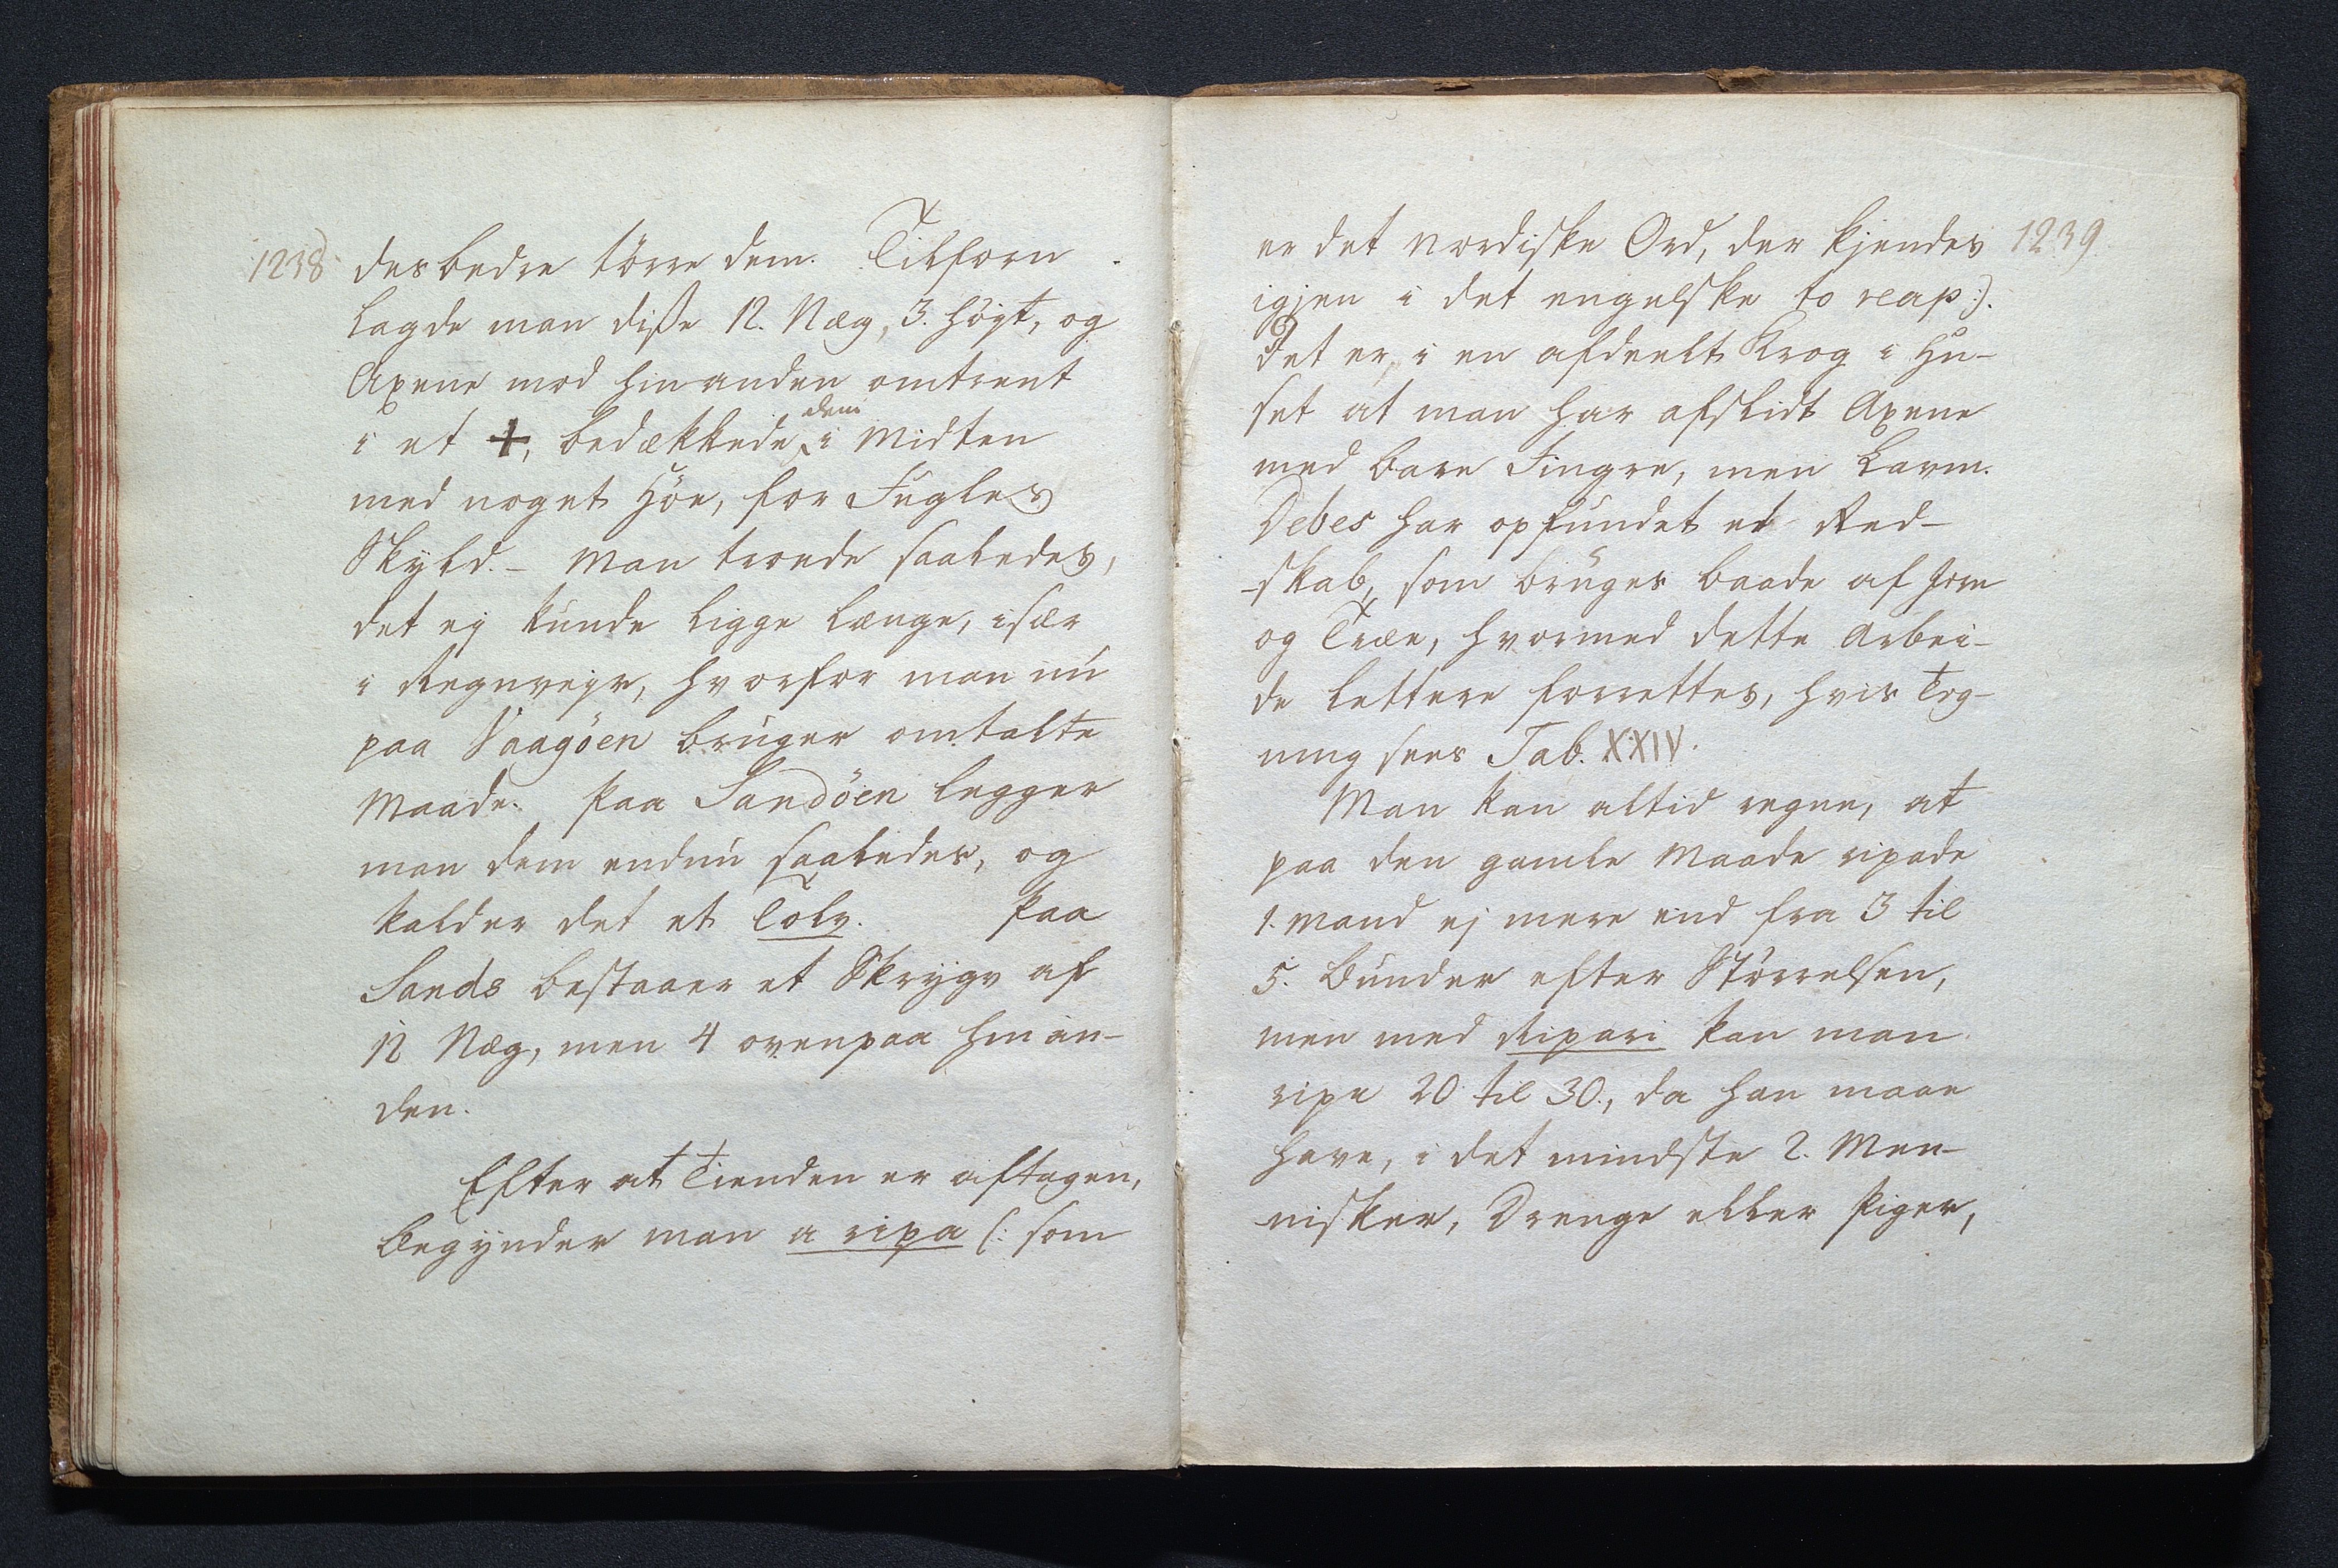 1238
desbedre törre dem. Tilforn
lagde man diße 12. Neg, 3. höyt, og
Axene mod hinanden omtrent
i et +, bedækkede dem i Midten
med noget Höe, for Fugles
Skyld. - Man troede saaledes,
det ej kunde ligge længe, især
i Regnvejr, hvorfor man nu
paa Vaagöen bruger omtalte
Maade. Paa Sandöen legger
man dem endnu saaledes, og
kalder det et Tolv. Paa
Sands bestaaer et Skrÿgv af
12 Neg, men 4 ovenpaa hinan-
den.
Efter at Tienden er aftagen,
begynder man a ripa (: som
1239
er det nordiske Ord, der kjendes
igjen i det engelske to reap:).
Det er, i en afdeelt Krog i Hu-
set at man har afslidt Axene
med bare Fingre, men Lavm.
Debes har opfundet et Red-
-skab, som bruges baade af Jern
og Træe, hvormed dette Arbei-
de lettere forrettes, hvis Teg-
ning sees Tab. XXIV.
Man kan altid regne, at
paa den gamle Maade ripade
1. Mand ej mere end fra 3 til
5. Bunder efter Störrelsen,
men med Ripari kan man
ripe 20 til 30., da han maae
have, i det mindste 2. Men-
nisker, Drenge eller Piger,